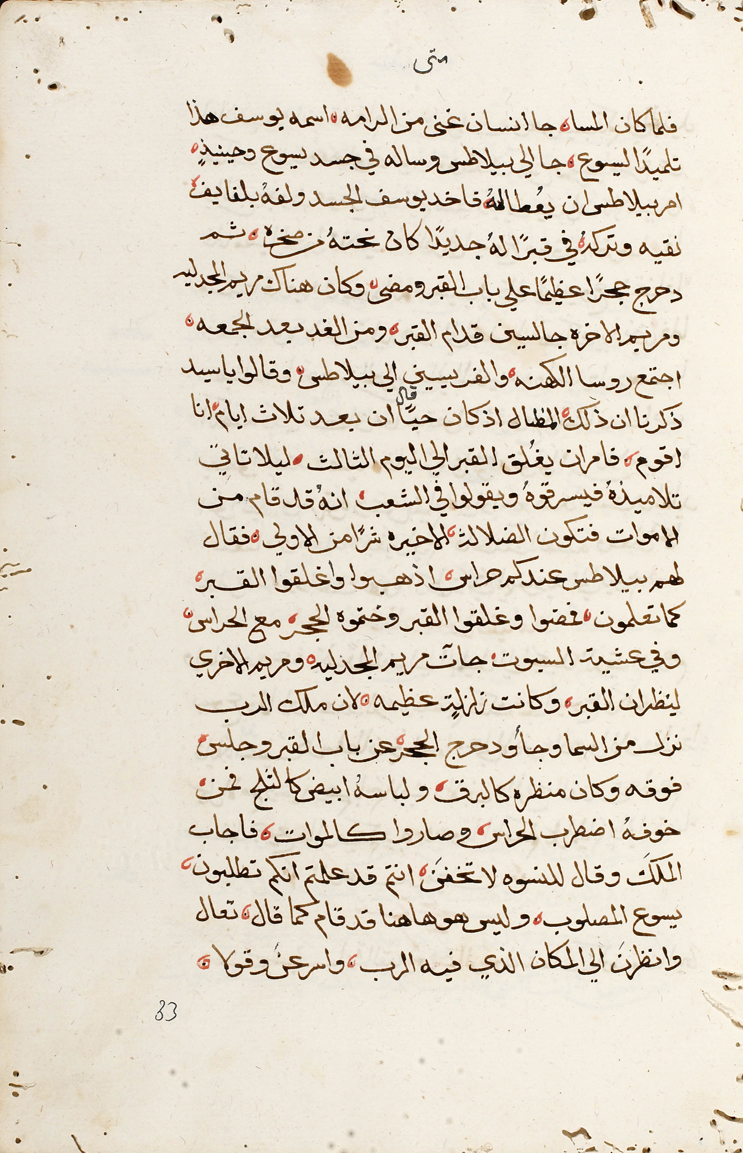 متى
فلما كان المسا جا انسان غني من الرامه اسمه يوسف هذا
تلميدًا ليسوع جا الي بيلاطس وساله في جسد يسوع وحينيذٍ
امر بيلاطس ان يعُطا لهُ فاخد يوسف الجسد ولفهُ بلفايف
نقيه وتركهُ في قبرًا لهُ جديدًا كان نحتهُ من صخره ثم
دحرج حجرًا عظيمًا علي باب القبر ومضى وكان هناك مريم المجدليه
ومريم الاخره جالسين قدام القبر ومن الغد بعد الجمعه
اجتمع روسا الكهنه والفريسيين الي بيلاطس وقالوا ياسيد
ذكرنا ان ذلك المظال اذ كان حيًا قال ان بعد تلاث ايام انا
اقوم فامر ان يغُلق القبر الي اليوم التالث ليلا تاتي
تلاميذهُ فيسرقوهُ ويقولوا في الشعب انهُ قد قام من
الاموات فتكون الضلالة الاخيره شرًا من الاولي فقال
لهم بيلاطس عندكم حراس اذهبوا واغلقوا القبر
كما تعلمون فمضوا وغلقوا القبر وختموه الحجر مع الحراس
وفي عشية السبوت جاتْ مريم المجدليه ومريم الاخري
لينظران القبر وكانت زلزلةٍ عظيمه لان ملاك الرب
نزل من السما وجا ودحرج الحجر عن باب القبر وجلس
فوقه وكان منظره كالبرق ولباسهُ ابيض كالتلج فمن
خوفهُ اضطرب الحراس وصاروا كالموات فاجاب
الملكَ وقال للنسوه لا تخفنَ انتم قد علمتم انكم تطلبون
يسوع المصلوب وليس هو هاهنا قد قام كما قال تعال
وانظرنَ الي المكان الذي فيه الرب واسرعنَ وقولا
33